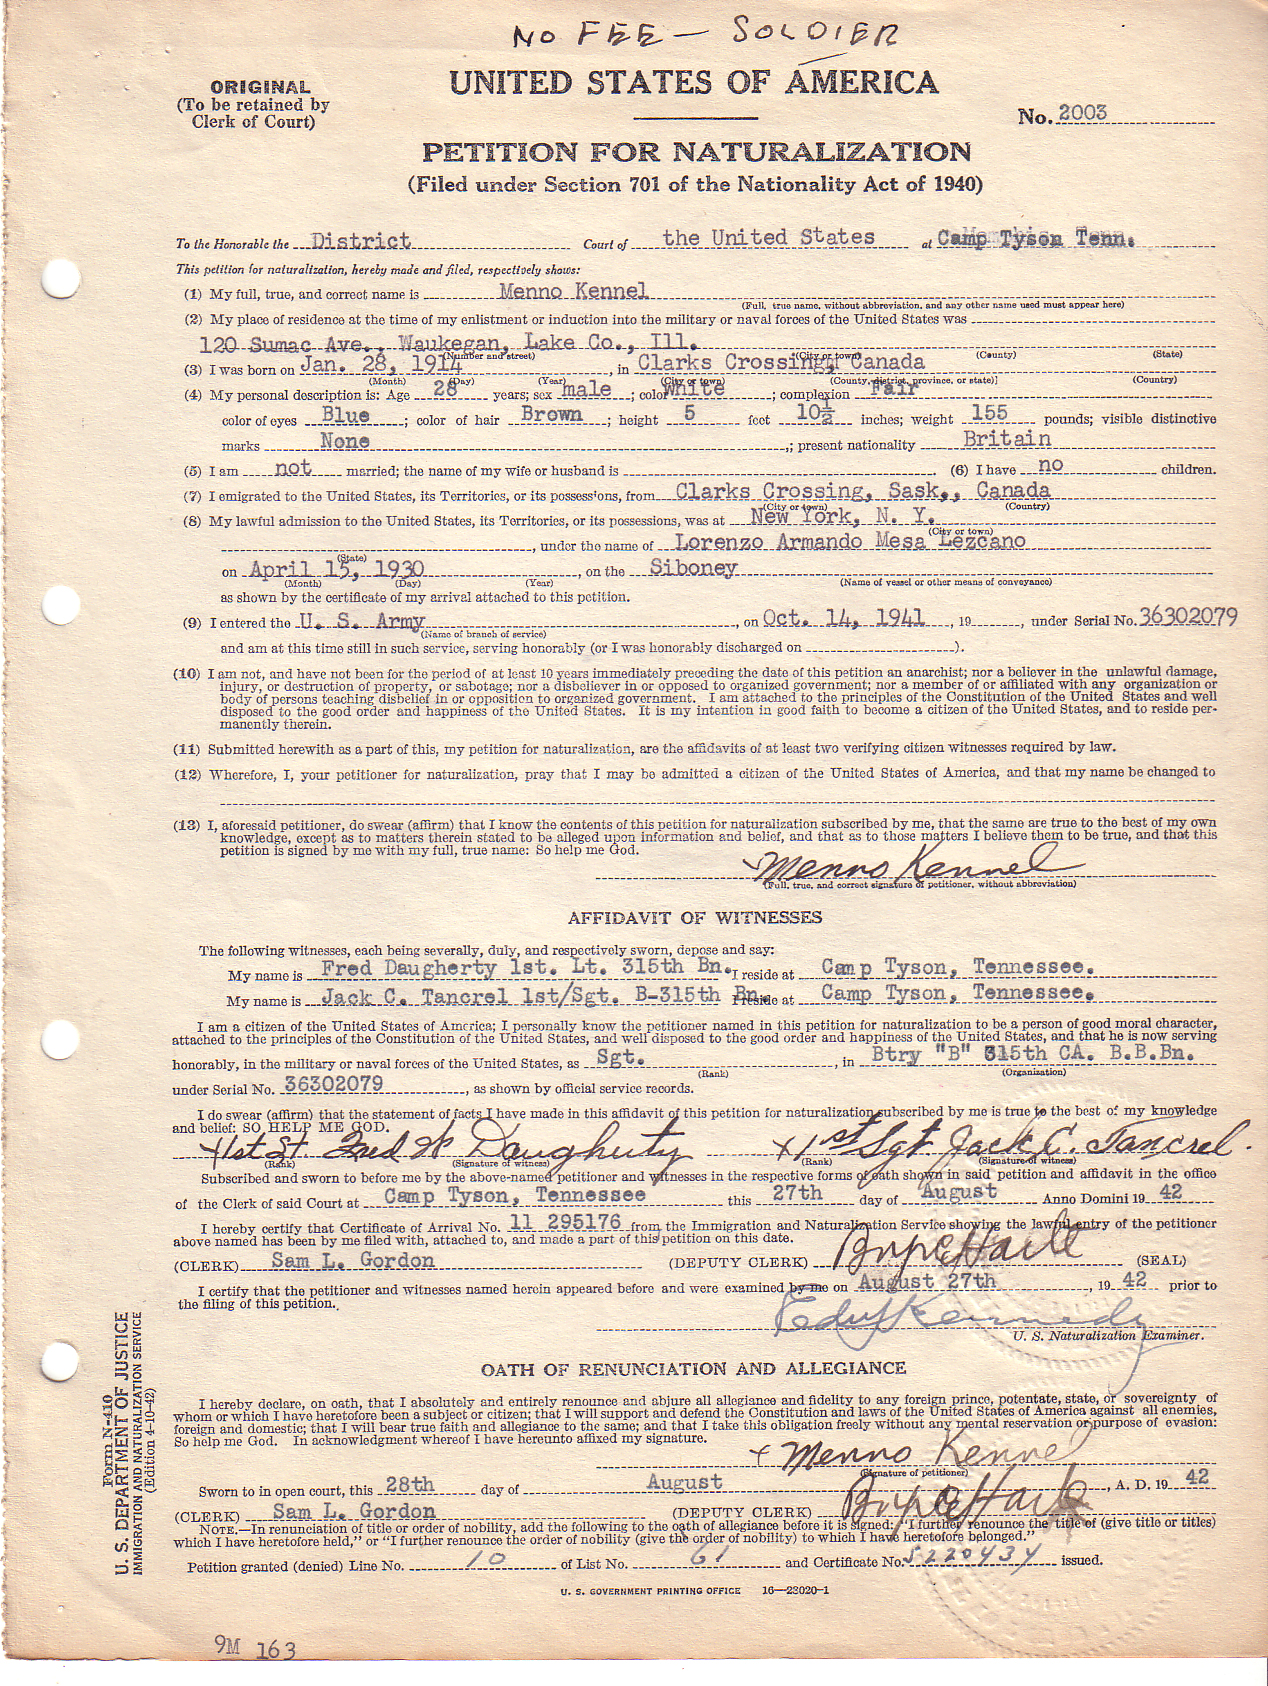 NO FEE — SOLDIER
ORIGINAL
(To be retained by
Clerk of Court)
UNITED STATES OF AMERICA
No. 2003
PETITION FOR NATURALIZATION
(Filed under Section 701 of the Nationality Act of 1940)
To the Honorable the District Court of the United States at Camp Tyson Tenn.
This petition for naturalization, hereby made and filed, respectively shows:
(1) My full, true, and correct name is Menno Kennel
(Full, true name, without abbreviation, and any other name used must appear here)
(2) My place of residence at the time of my enlistment or induction into the military or naval forces of the United States was
120 Sumac Ave., Waukegan, Lake Co., Ill.
(Number and street) (City or town) (County) (State)
(3) I was born on Jan. 28, 1914, in Clarks Crossing, Canada
(Month) (Day) (Year) (City or town) (County, district, province, or state) (Country)
(4) My personal description is: Age 28 years; sex male; color White; complexion Fair
color of eyes Blue; color of hair Brown; height 5 feet 10½ inches; weight 155 pounds; visible distinctive
marks None; present nationality Britain
(5) I am not married; the name of my wife or husband is . (6) I have no children.
(7) I emigrated to the United States, its Territories, or its possessions, from Clarks Crossing, Sask., Canada
(City or town) (Country)
(8) My lawful admission to the United States, its Territories, or its possessions, was at New York, N. Y.
(City or town)
, under the name of Lorenzo Armando Mesa Lezcano
(State)
on April 15, 1930, on the Siboney
(Month) (Day) (Year) (Name of vessel or other means of conveyance)
as shown by the certificate of my arrival attached to this petition.
(9) I entered the U. S. Army, on Oct. 14, 1941, 19, under Serial No. 36302079
(Name of branch of service)
and am at this time still in such service, serving honorably (or I was honorably discharged on ).
(10) I am not, and have not been for the period of at least 10 years immediately preceding the date of this petition an anarchist; nor a believer in the unlawful damage,
injury, or destruction of property, or sabotage; nor a disbeliever in or opposed to organized government; nor a member of or affiliated with any organization or
body of persons teaching disbelief in or opposition to organized government. I am attached to the principles of the Constitution of the United States and well
disposed to the good order and happiness of the United States. It is my intention in good faith to become a citizen of the United States, and to reside per-
manently therein.
(11) Submitted herewith as a part of this, my petition for naturalization, are the affidavits of at least two verifying citizen witnesses required by law.
(12) Wherefore, I, your petitioner for naturalization, pray that I may be admitted a citizen of the United States of America, and that my name be changed to
(13) I, aforesaid petitioner, do swear (affirm) that I know the contents of this petition for naturalization subscribed by me, that the same are true to the best of my own
knowledge, except as to matters therein stated to be alleged upon information and belief, and that as to those matters I believe them to be true, and that this
petition is signed by me with my full, true name: So help me God.
Menno Kennel
(Full, true, and correct signature of petitioner, without abbreviation)
AFFIDAVIT OF WITNESSES
The following witnesses, each being severally, duly, and respectively sworn, depose and say:
My name is Fred Daugherty 1st. Lt. 315th Bn. I reside at Camp Tyson, Tennessee.
My name is Jack C. Tancrel 1st/Sgt. B-315th Bn. I reside at Camp Tyson, Tennessee.
I am a citizen of the United States of America; I personally know the petitioner named in this petition for naturalization to be a person of good moral character,
attached to the principles of the Constitution of the United States, and well disposed to the good order and happiness of the United States, and that he is now serving
honorably, in the military or naval forces of the United States, as Sgt., in Btry "B" 315th CA. B.B.Bn.
(Rank) (Organization)
under Serial No. 36302079, as shown by official service records.
I do swear (affirm) that the statement of facts I have made in this affidavit of this petition for naturalization subscribed by me is true to the best of my knowledge
and belief: SO HELP ME GOD.
x 1st Lt. Fred W Daugherty x 1st Sgt Jack C. Tancrel.
(Rank) (Signature of witness) (Rank) (Signature of witness)
Subscribed and sworn to before me by the above-named petitioner and witnesses in the respective forms of oath shown in said petition and affidavit in the office
of the Clerk of said Court at Camp Tyson, Tennessee this 27th day of August Anno Domini 19 42
I hereby certify that Certificate of Arrival No. 11 295176 from the Immigration and Naturalization Service showing the lawful entry of the petitioner
above named has been by me filed with, attached to, and made a part of this petition on this date.
(CLERK) Sam L. Gordon (DEPUTY CLERK) (SEAL)
I certify that the petitioner and witnesses named herein appeared before and were examined by me on August 27th, 19 42 prior to
the filing of this petition.
Kennedy
U. S. Naturalization Examiner.
OATH OF RENUNCIATION AND ALLEGIANCE
I hereby declare, on oath, that I absolutely and entirely renounce and abjure all allegiance and fidelity to any foreign prince, potentate, state, or sovereignty of
whom or which I have heretofore been a subject or citizen; that I will support and defend the Constitution and laws of the United States of America against all enemies,
foreign and domestic; that I will bear true faith and allegiance to the same; and that I take this obligation freely without any mental reservation or purpose of evasion:
So help me God. In acknowledgment whereof I have hereunto affixed my signature.
x Menno Kennel
(Signature of petitioner)
Sworn to in open court, this 28th day of August, A. D. 19 42
(CLERK) Sam L. Gordon (DEPUTY CLERK)
NOTE.—In renunciation of title or order of nobility, add the following to the oath of allegiance before it is signed: "I further renounce the title of (give title or titles)
which I have heretofore held," or "I further renounce the order of nobility (give the order of nobility) to which I have heretofore belonged."
Petition granted (denied) Line No. 10 of List No. 61 and Certificate No. 5220434 issued.
U. S. GOVERNMENT PRINTING OFFICE 16—23020-1
Form N-410
U. S. DEPARTMENT OF JUSTICE
IMMIGRATION AND NATURALIZATION SERVICE
(Edition 4-10-42)
9M 163